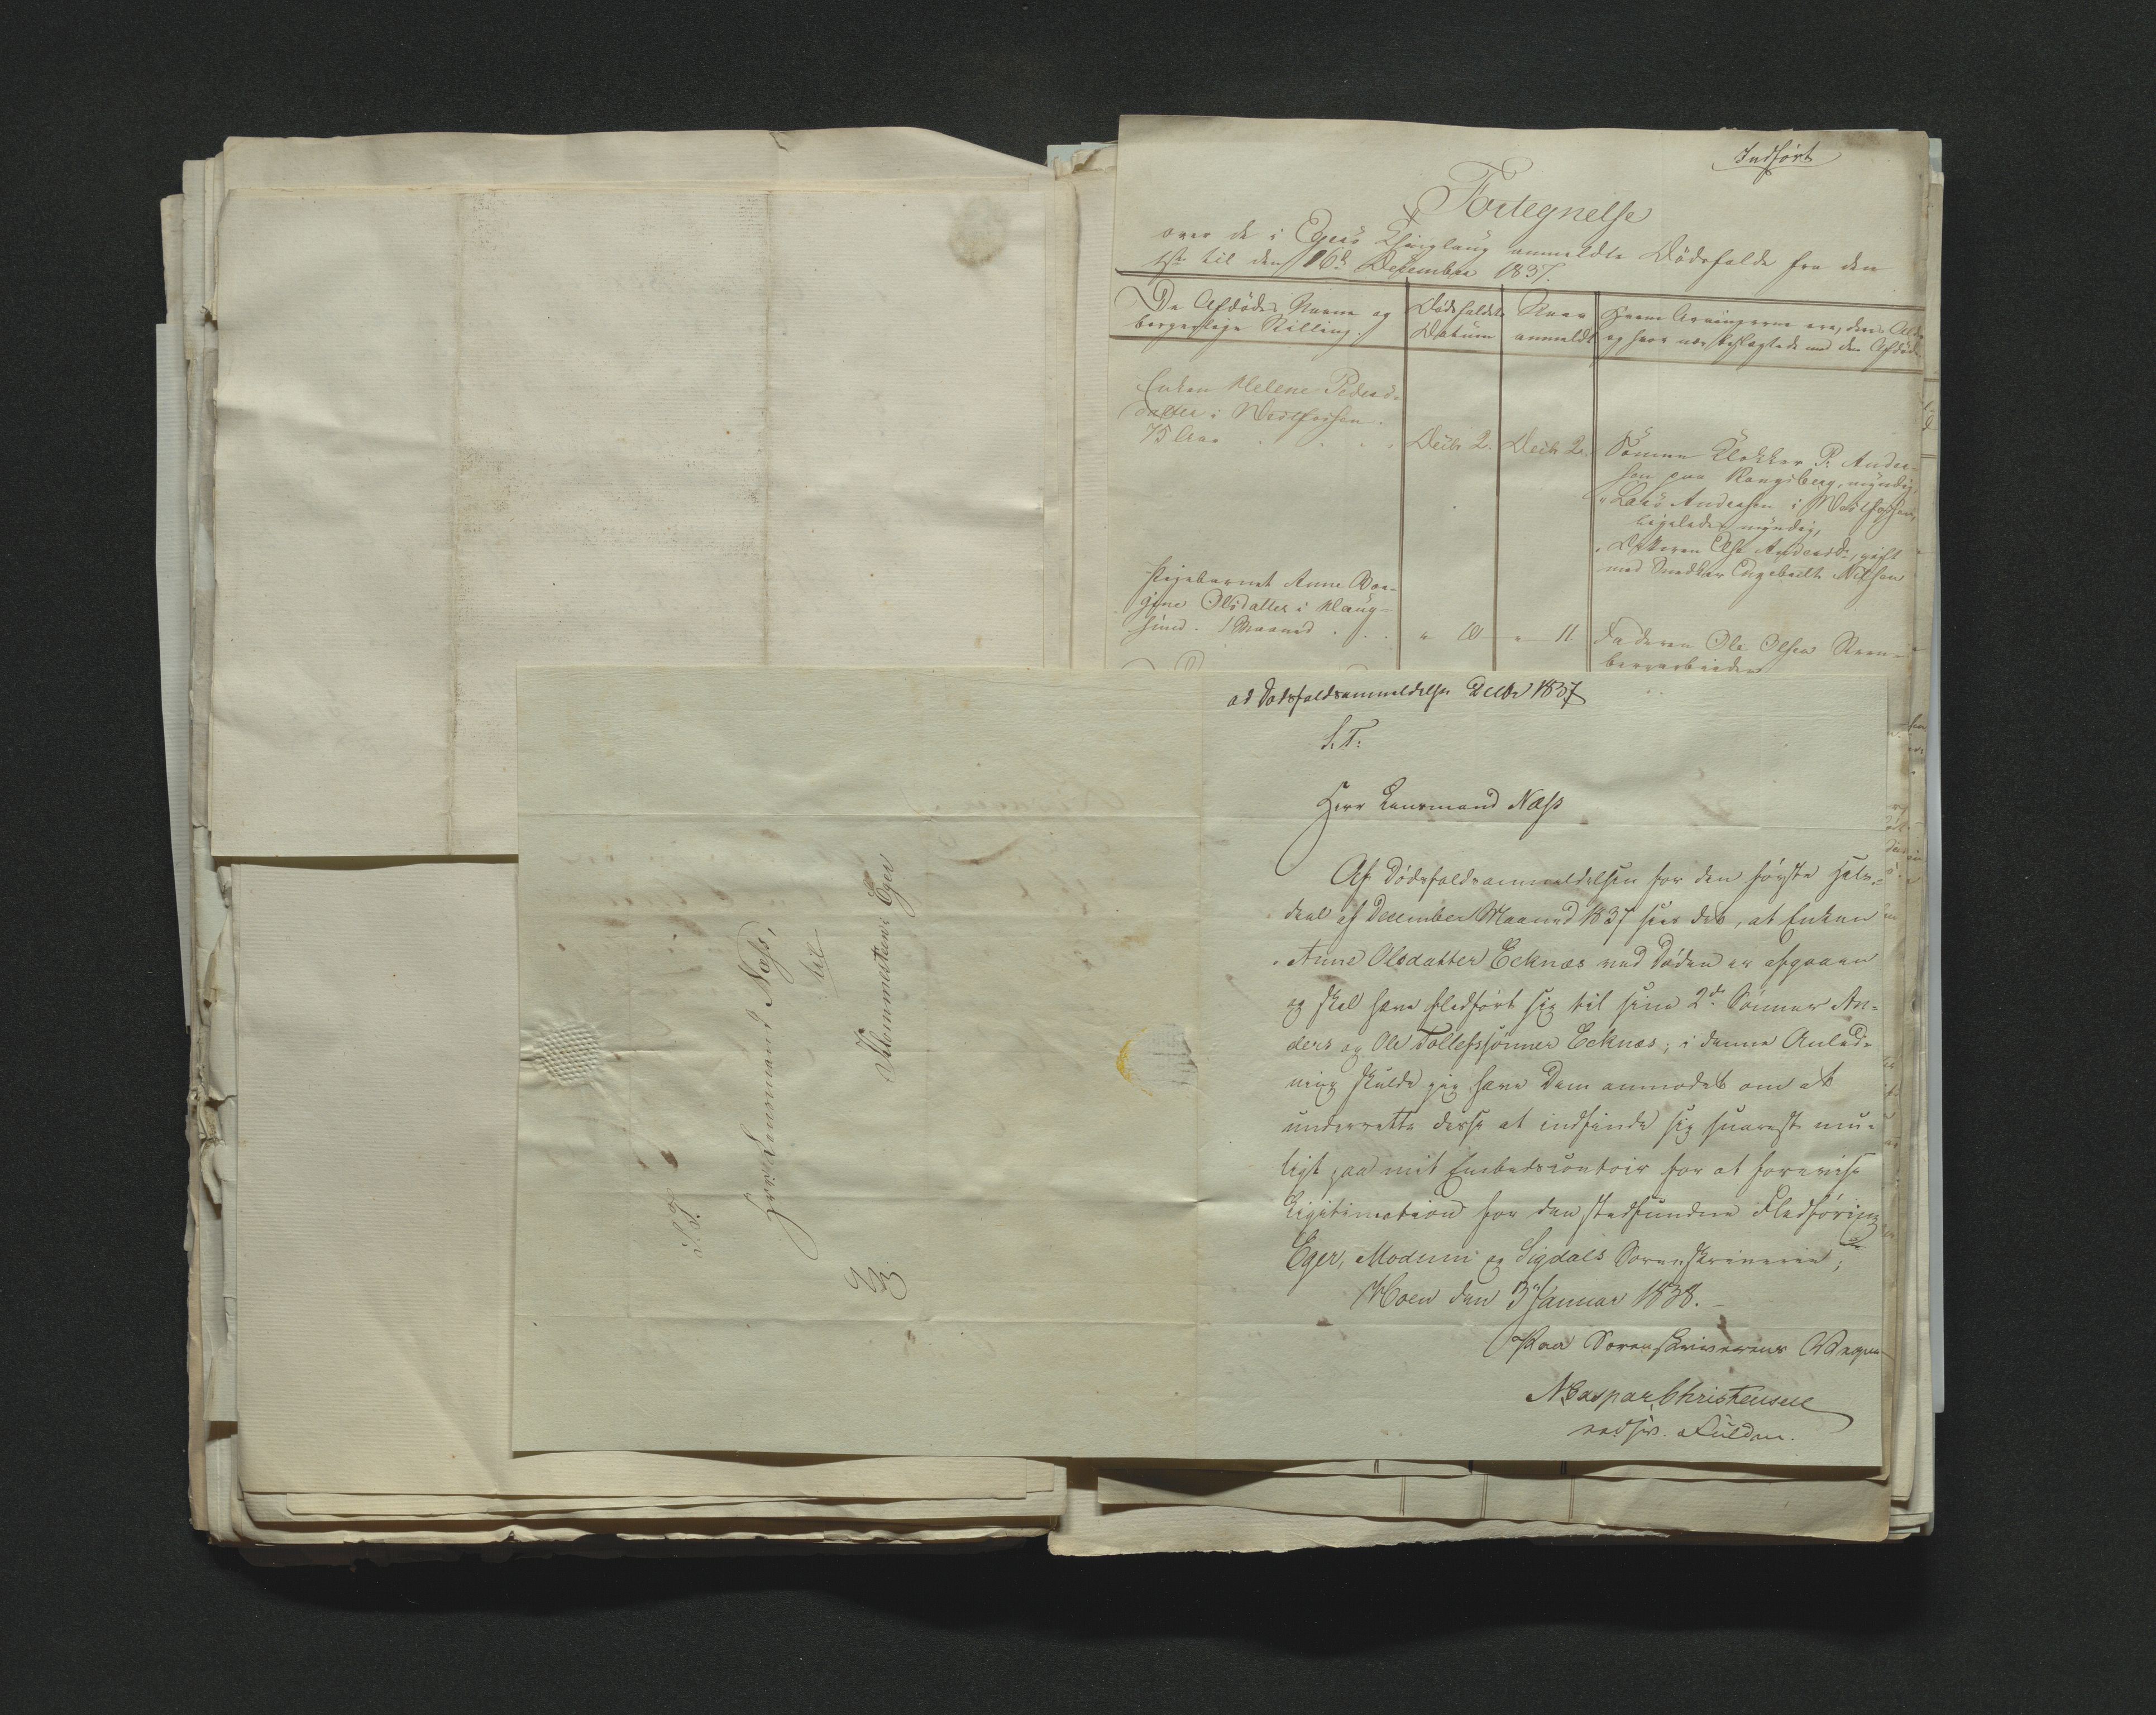 Indført
Fortegnelse
over de i Egers Thinglaug anmeldte Dödsfalde fra den
1ste til den 16de December 1837.
De Afdödes Navne og
borgerlige Stilling.
Dödsfaldets
Datum
Naar
anmeldt
Hvem Arvingerne ere, deres Alder
og hvor nær beslægtede med den Afdöde
Enken Helene Peders-
datter i Vestfossen.
75 Aar
Decbr 2.
Decbr 2.
Sönnen Klokker P. Ander-
sen paa Kongsberg, myndig
" Lars Andersen i Vestfossen,
ligeledes myndig,
" Datteren Else Andersd:, gift
med Snedker Engebrelt Nilsen
Pigebarnet Anne Bor-
gine Olsdatter i Haug-
sund. 1 Maaned
" 10
" 11
Faderen Ole Olsen
ad Dødsfaldsanmeldelse Decbr 1837
S. T.
Herr Lensmand Næss
Af Dødsfaldsanmeldelsen for den første Halv-
deel af December Maaned 1837 sees det, at Enken
Anne Olsdatter Ecknæs ved Døden er afgaaen
og skal have fledført sig til sine 2de Sønner An-
ders og Ole Tollefssønner Ecknæs; i denne Anled-
ning skulde jeg have Dem anmodet om at
underrette disse at indfinde sig snarest mu-
ligt paa mit Embedscontoir for at forevise
Legitimation for den stedfundne Fledføring
Eger, Modums og Sigdals Sorenskriverie;
Hoen den 3 Januar 1838.
Paa Sorenskriverens Vegne
N Caspar Christensen
efter Fuldm.
S. T.
Herr Lensmand Næss,
til
Klommesteen Eger